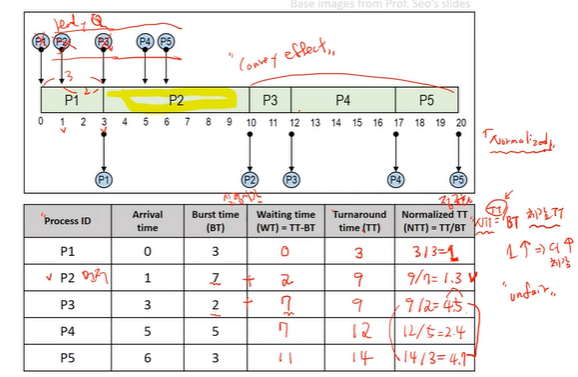 Base images from Prof. Seo's slides
Ready Q
P1 P2 P3 P4 P5
"Convoy effect"
3
2
P1 P2 P3 P4 P5
0 1 2 3 4 5 6 7 8 9 10 11 12 13 14 15 16 17 18 19 20
P1 P2 P3 P4 P5
Normalized
Process ID Arrival time Burst time (BT) Waiting time (WT) = TT-BT Turnaround time (TT) Normalized TT (NTT) = TT/BT
P1 0 3 0 3 3/3=1
P2 1 7 + 2 9 9/7=1.3
P3 3 2 + 7 9 9/2=4.5
P4 5 5 7 12 12/5=2.4
P5 6 3 11 14 14/3=4.7
NTT = TT/BT 체감 TT
1↑ ⇒ 더↑
체감
"unfair"